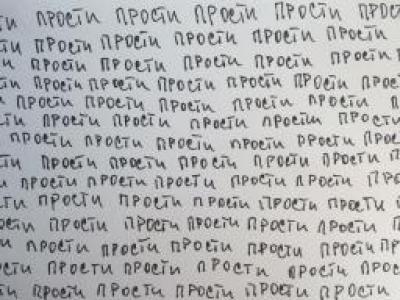 ти прости прости прости прости прос
прости прости прости прости
и прости прости прости прости прости
прости прости прости прости прости
и прости прости прости прости прости
прости прости прости прости прости
прости прости прости прости прости
ти прости прости прости прости прости
и прости прости прости прости прости
ости прости прости прости прости п
прости прости прости прости прости
ти прости прости прости прости прости
сти прости прости прости прости